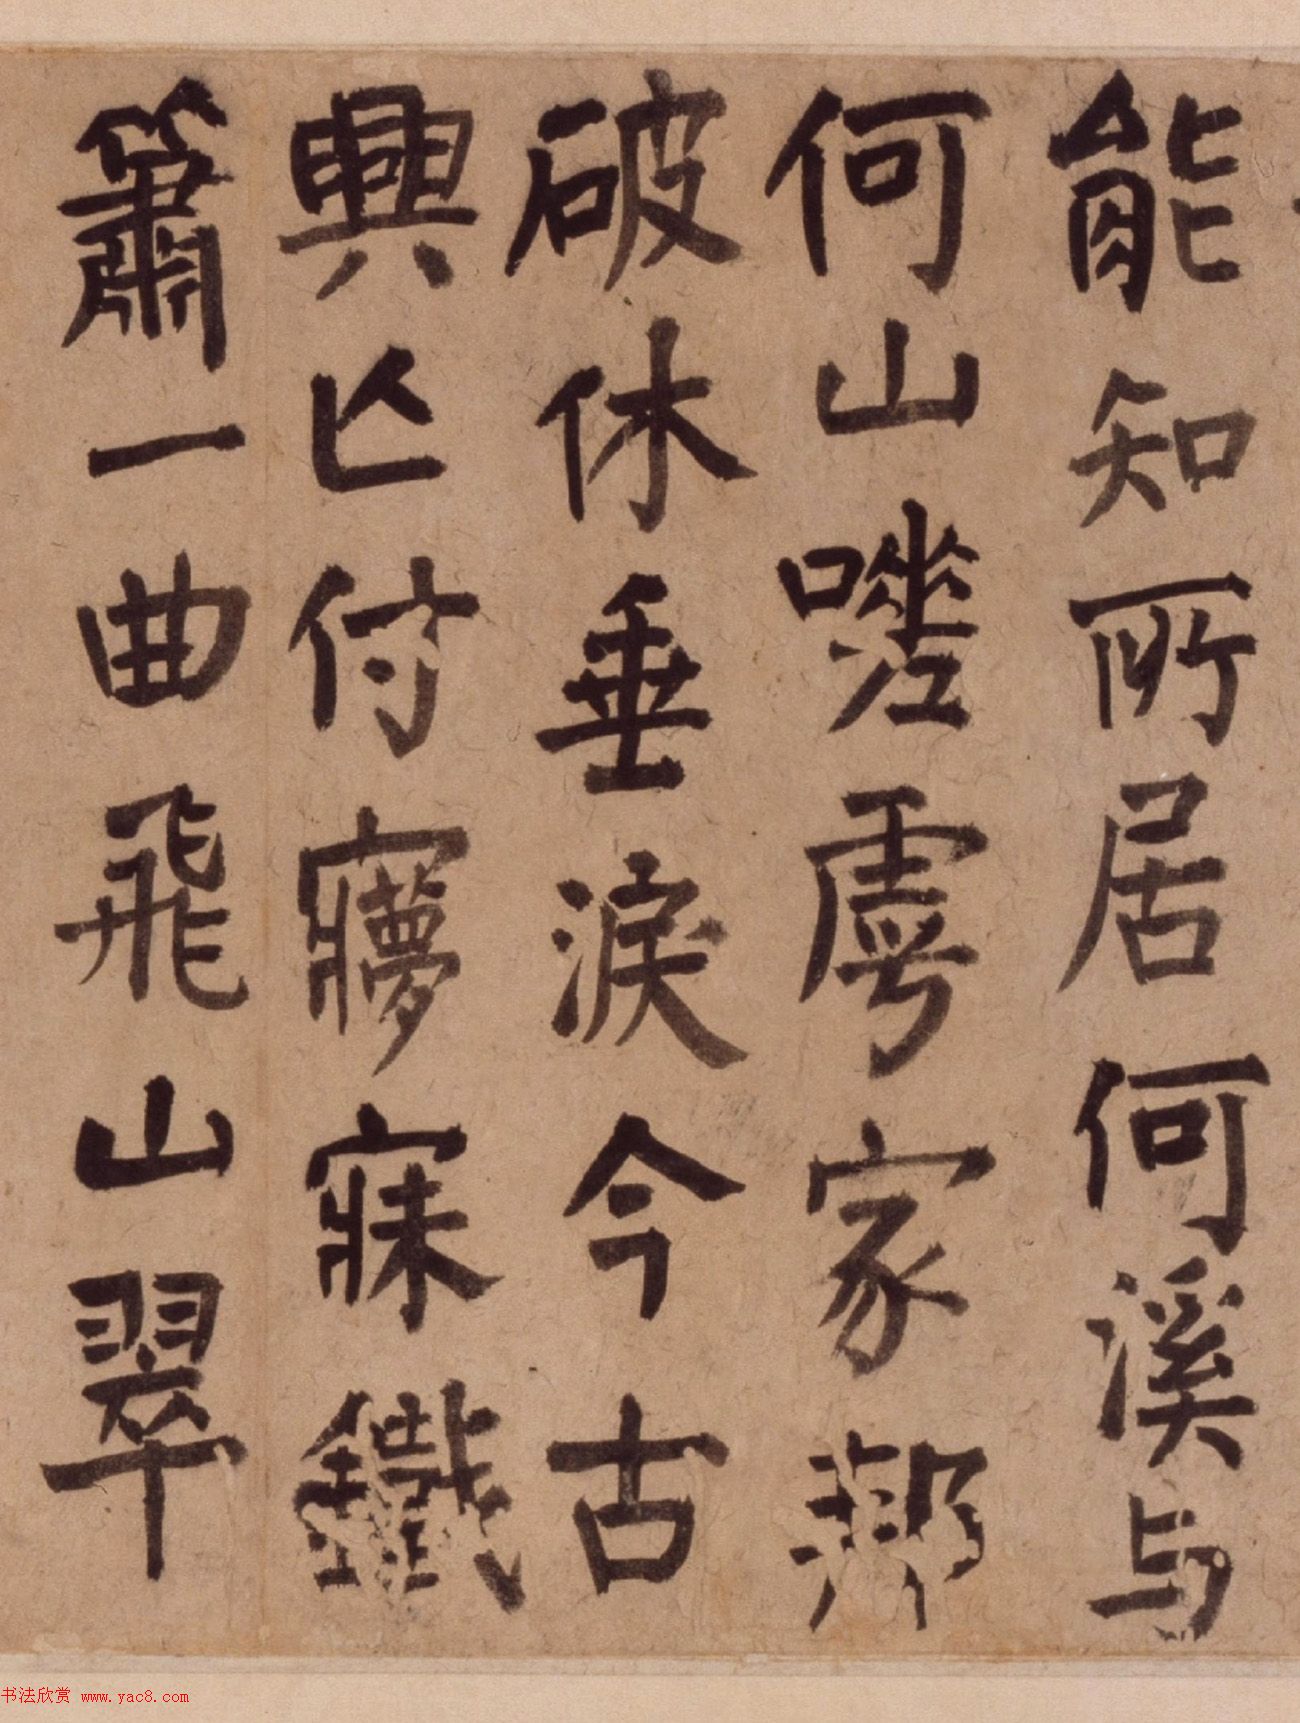 能知所居何溪与
何山嗟虖家邦
破休垂淚今古
興亾付寱寐鐵
簫一曲飛山翠
书法欣赏 www.yac8.com